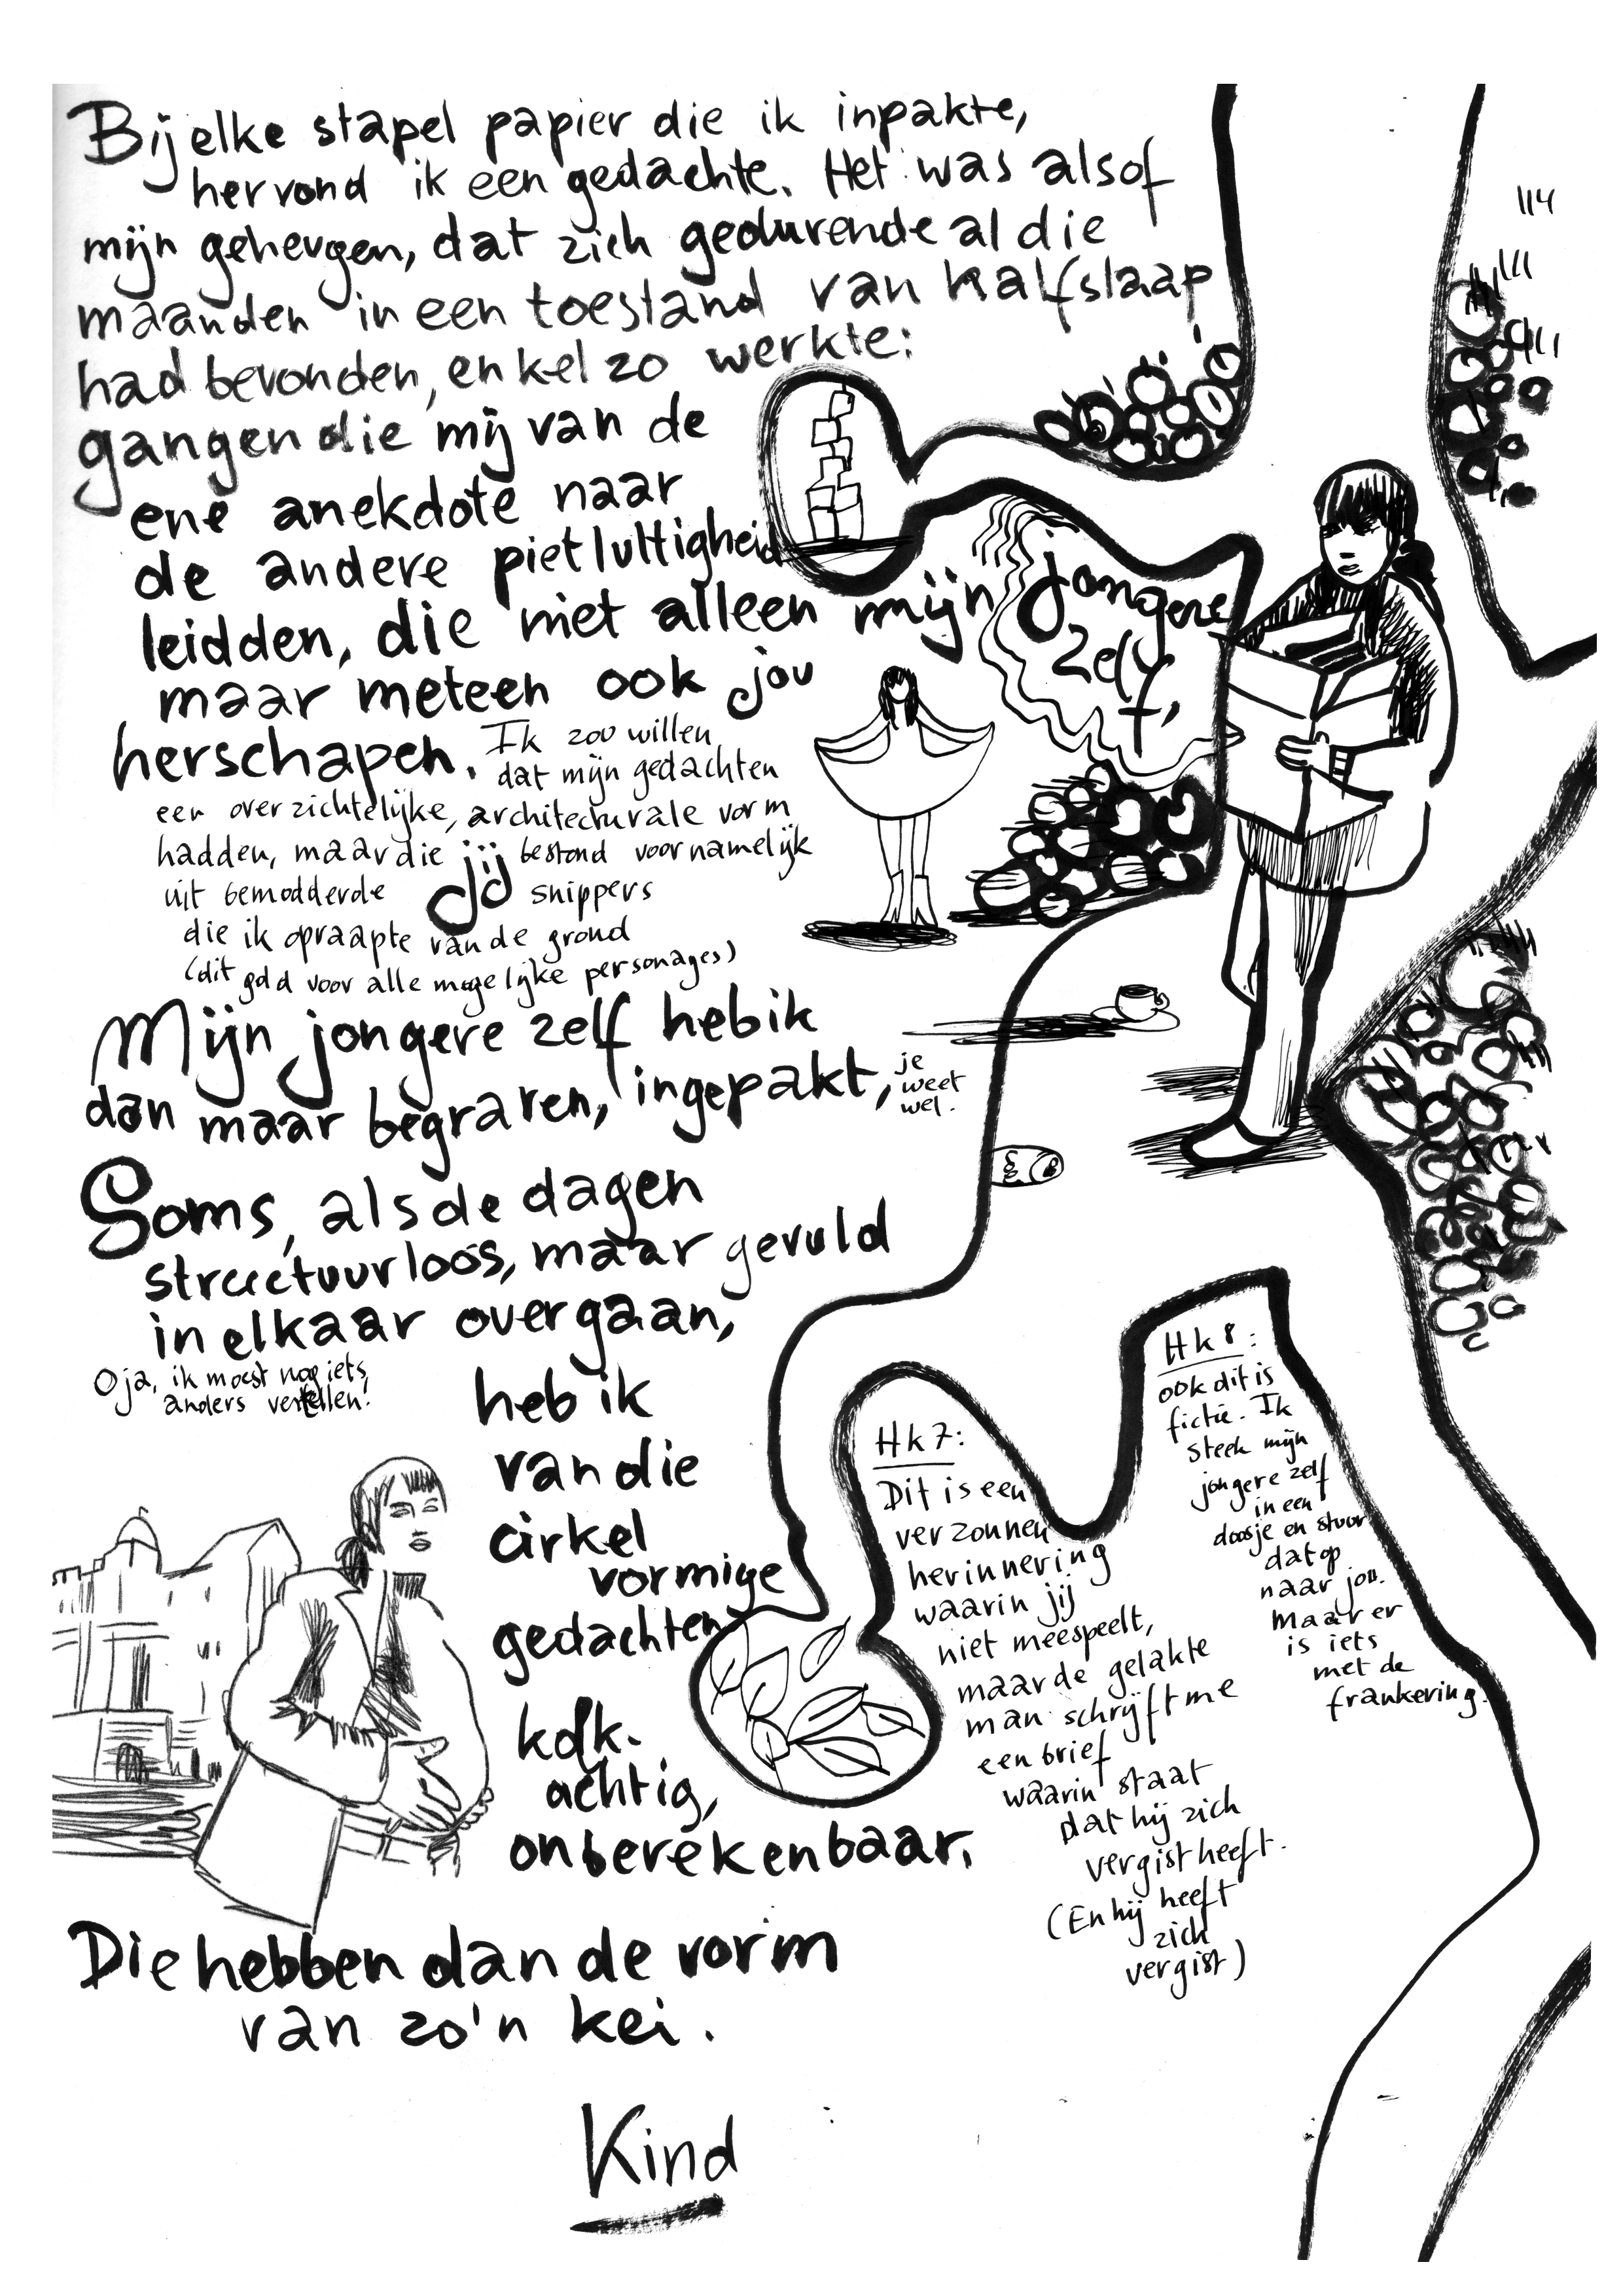 Bij elke stapel papier die ik inpakte,
hervond ik een gedachte. Het was alsof
mijn geheugen, dat zich gedurende al die
maanden in een toestand van halfslaap
had bevonden, enkel zo werkte:
gangen die mij van de
ene anekdote naar
de andere pietluttigheid
leidden, die niet alleen mijn jongere
zelf,
maar meteen ook jou
herschapen. Ik zou willen
dat mijn gedachten
een overzichtelijke, architecturale vorm
hadden, maar die jij bestond voornamelijk
uit bemodderde snippers
die ik opraapte van de grond
(dit gold voor alle mogelijke personages)
Mijn jongere zelf heb ik
dan maar begraven, ingepakt, je
weet
wel.
Soms, als de dagen
structuurloos, maar gevuld
in elkaar overgaan,
Oja, ik moest nog iets
anders vertellen!
heb ik
van die
cirkel
vormige
gedachten
kolk-
achtig,
onberekenbaar.
Die hebben dan de vorm
van zo'n kei.
Kind
Hk 7:
Dit is een
verzonnen
herinnering
waarin jij
niet meespeelt,
maar de gelakte
man schrijft me
een brief
waarin staat
dat hij zich
vergist heeft.
(En hij heeft
zich
vergist)
Hk 8:
ook dit is
fictie. Ik
steek mijn
jongere zelf
in een
doosje en stuur
dat op
naar jou.
Maar er
is iets
met de
frankering.
114